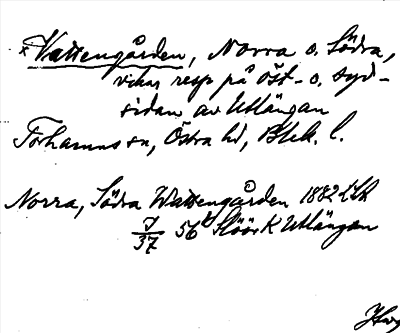 × Wattengården, Norra o. Södra,
vikar resp på öst- o. syd-
sidan av Utlängan
Torhamns sn, Östra hd, Blek. l.
Norra, Södra Wattengården 1882
J/37 56 b Utlängan